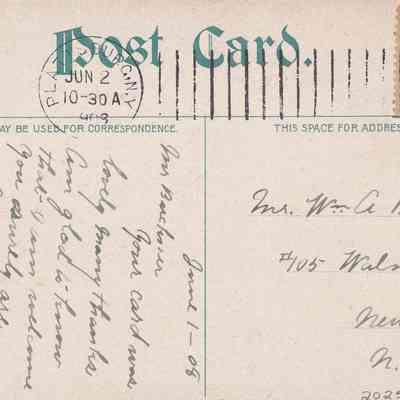 Post Card.
PLATTSBURG, N.Y.
JUN 2
10-30 A
MAY BE USED FOR CORRESPONDENCE.
THIS SPACE FOR ADDRESS
June 1 - 08
Your card was
lovely many thanks
am glad to know
that I am welcome
You surely are
Mr. Wm A
#105 Waln
New
N.